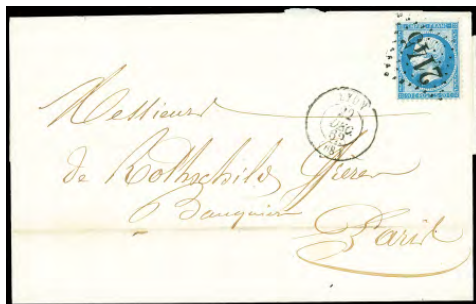 2145
LYON
22
DEC
Messieurs
de Rothschild Freres
Banquiers
Paris